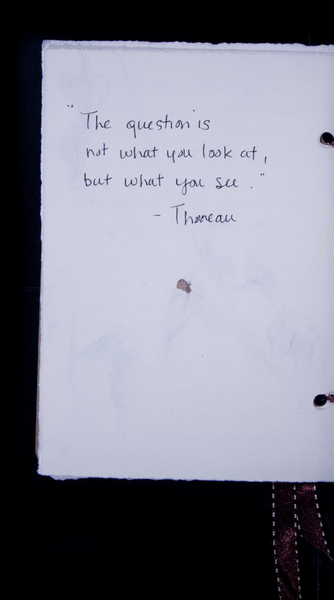 "The question is
not what you look at,
but what you see."
- Thoreau